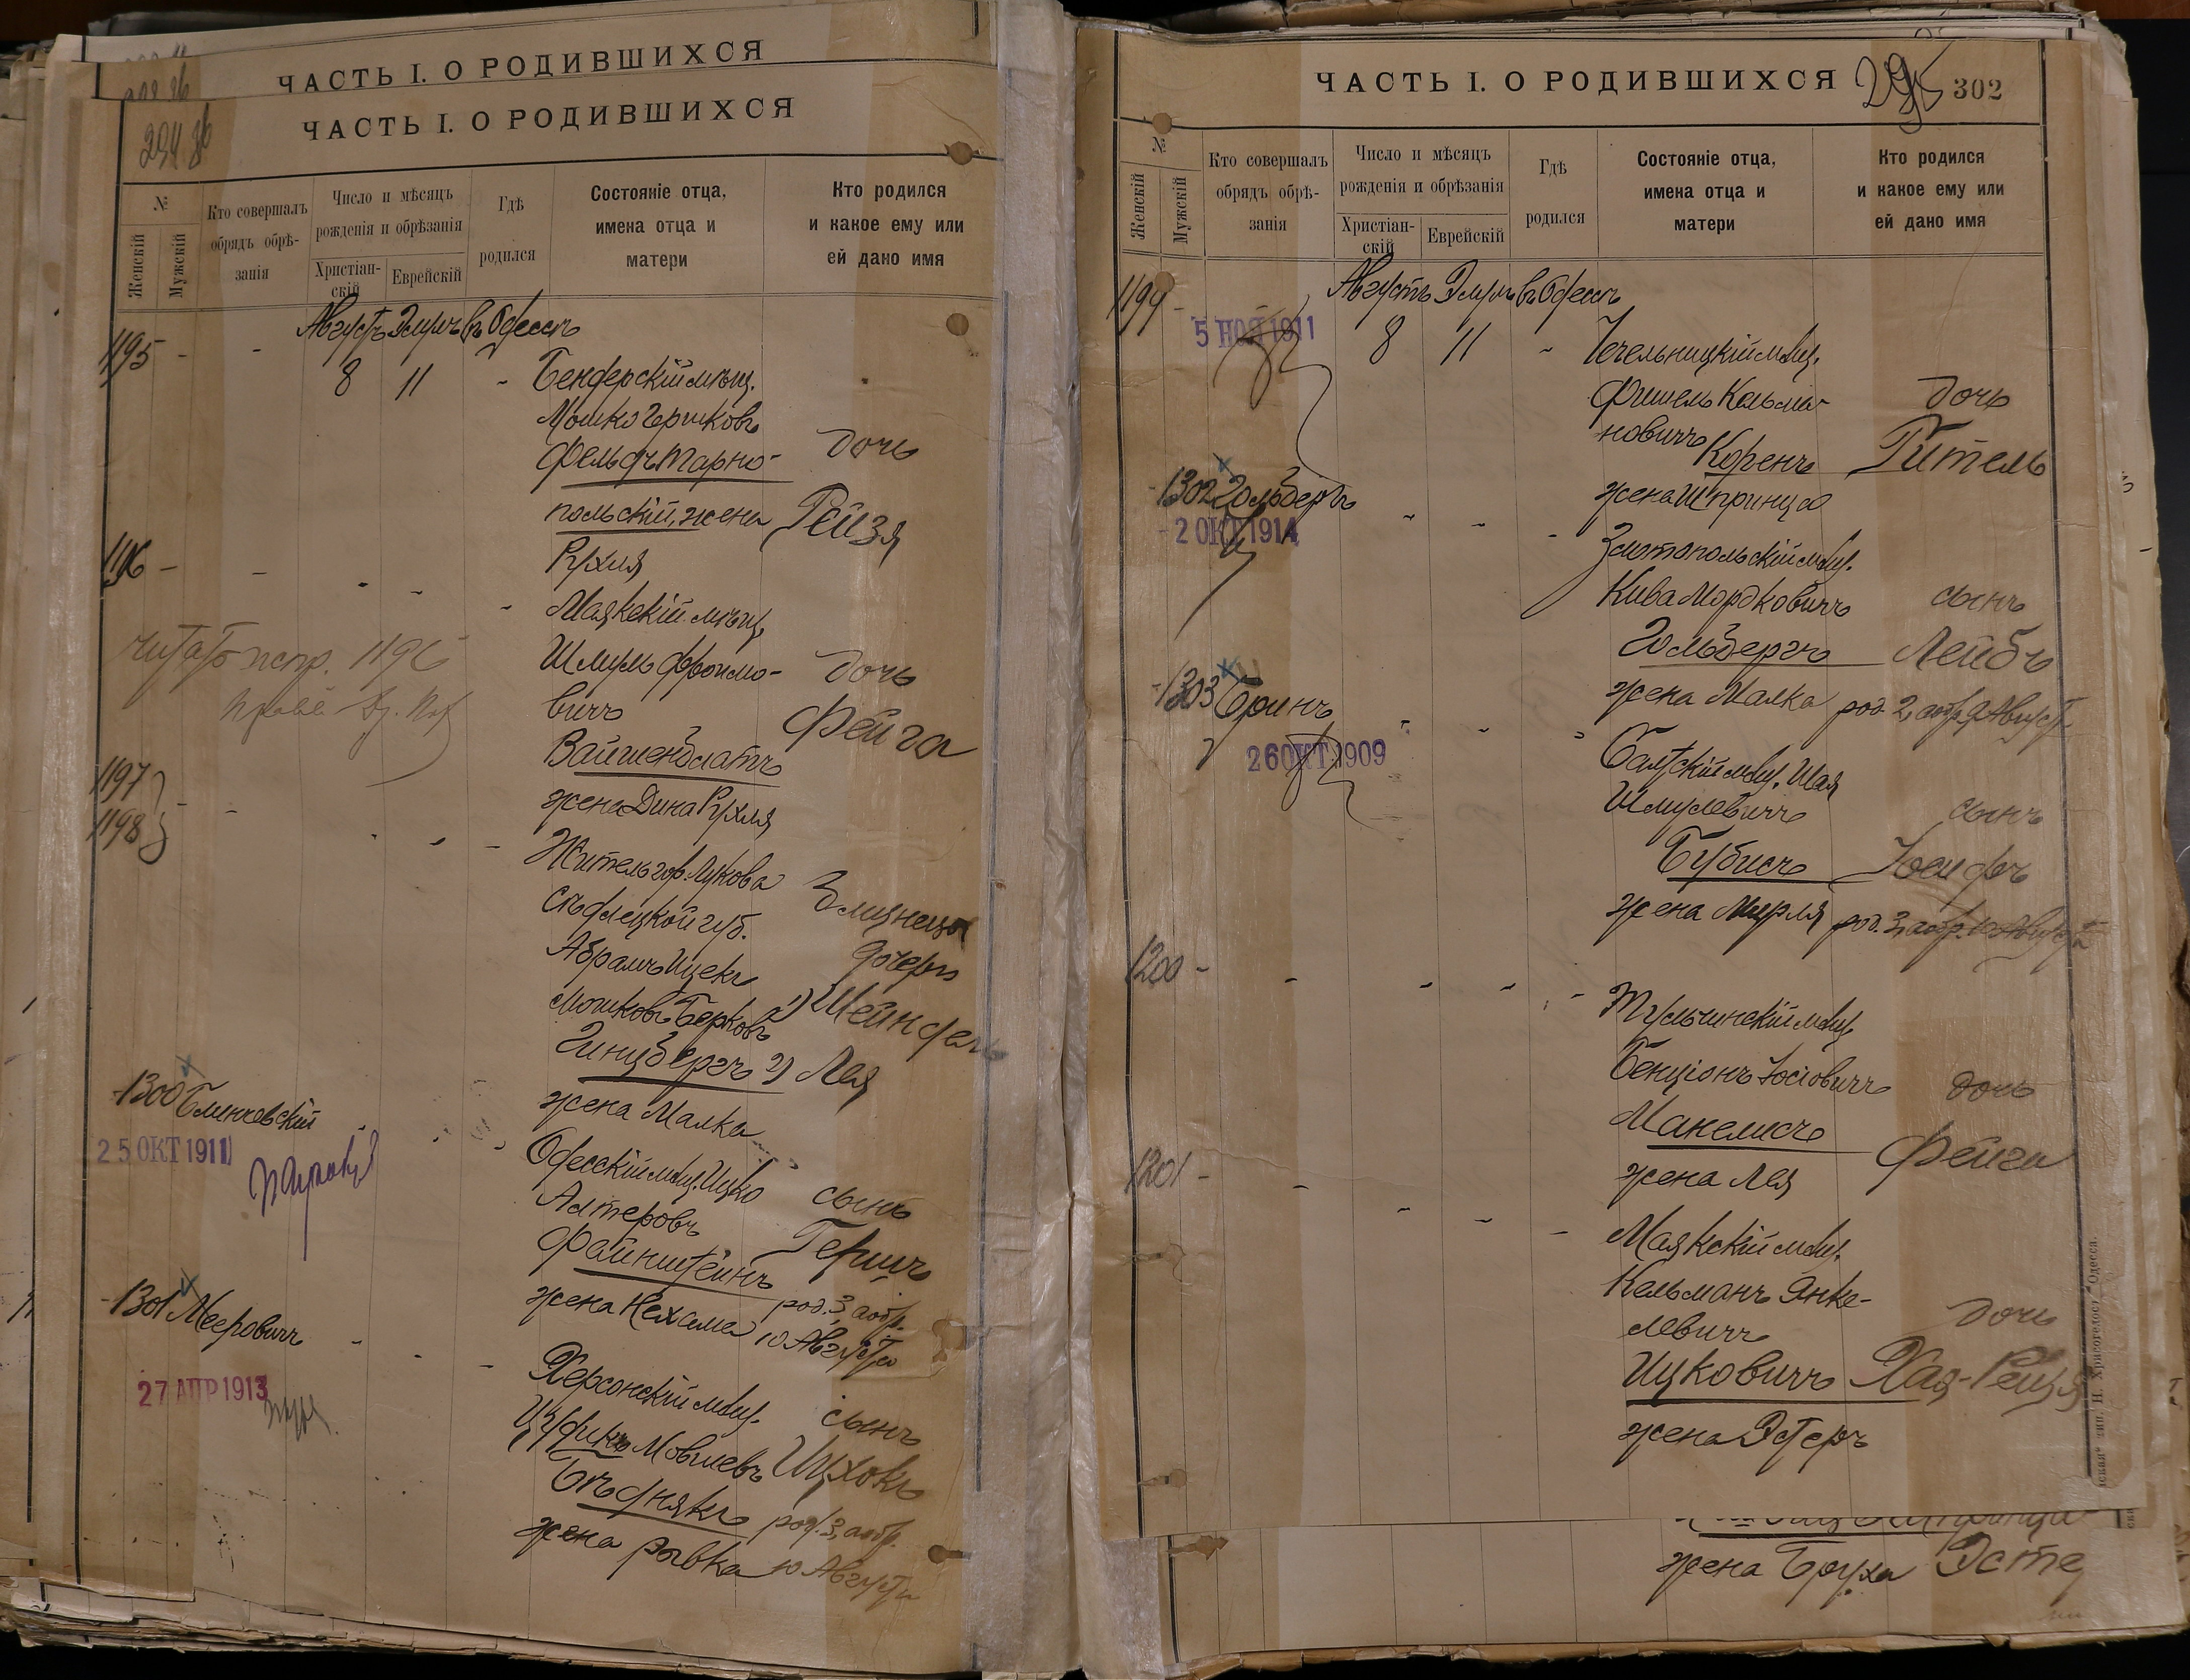 ЧАСТЬ I. О РОДИВШИХСЯ
ЧАСТЬ I. О РОДИВШИХСЯ
№
Женскій
Мужскій
Кто совершалъ
обрядъ обрѣ-
занія
Число и мѣсяцъ
рожденія и обрѣзанія
Христіан-
скій
Еврейскій
Гдѣ
родился
Состояніе отца,
имена отца и
матери
Кто родился
и какое ему или
ей дано имя
Августъ Элулъ въ Одессѣ
1195 - - 8 11 - Бендерскій мѣщ.
Мошко Гершковъ
Фельдъ Тарно-
дочь
польскій, жена
Рейзя
Рухля
1196 - - - - - Маякскій мѣщ.
Шмуль Фроимо-
дочь
вичъ
Фейга
Вайсенблатъ
жена Дина Рухля
читать испр. 1196
1197
1198
Житель гор. Лукова
Сѣдлецкой губ.
Близнецы
Абрамъ Ицекъ
дочери
Мошковъ Берковъ
1) Шейндель
Гинцбергъ 2) Лея
жена Малка
1300 Блинчевскій
25 ОКТ 1911
Одесскій мѣщ. Ицко
Алтеровъ
сынъ
Файнштейнъ
Гершъ
жена Нехама
род. 3, а обр.
10 Августа
1301 Мееровичъ
27 АПР 1913
Херсонскій мѣщ.
сынъ
Цудикъ Мовшевъ
Ицхокъ
Бѣднякъ
род. 3, а обр.
жена Рывка 10 Августа
ЧАСТЬ I. О РОДИВШИХСЯ
295
302
№
Женскій
Мужскій
Кто совершалъ
обрядъ обрѣ-
занія
Число и мѣсяцъ
рожденія и обрѣзанія
Христіан-
скій
Еврейскій
Гдѣ
родился
Состояніе отца,
имена отца и
матери
Кто родился
и какое ему или
ей дано имя
Августъ Элулъ въ Одессѣ
1199 -
5 НОЯ 1911
8 11 - Чечельницкій мѣщ.
Фишель Кельма-
дочь
новичъ Коренъ
Гитель
жена Шпринца
1302 Гольдберъ
2 ОКТ 1914
Златопольскій мѣщ.
Кива Мордковичъ
сынъ
Гольбергъ
Лейбъ
жена Малка
род. 2, а обр. 9 Августа
1303 Бринъ
26 ОКТ 1909
Балтскій мѣщ. Шая
Шмулевичъ
сынъ
Бубисъ
Іосифъ
жена Мирля
род. 3, а обр. 10 Августа
1200 -
Тульчинскій мѣщ.
Бенціонъ Іосіовичъ
дочь
Манелисъ
Фейга
жена Лея
1201 -
Маякскій мѣщ.
Кельманъ Янке-
левичъ
дочь
Ицковичъ
Хая-Рейзя
жена Эстеръ
жена Бруха
Эсте